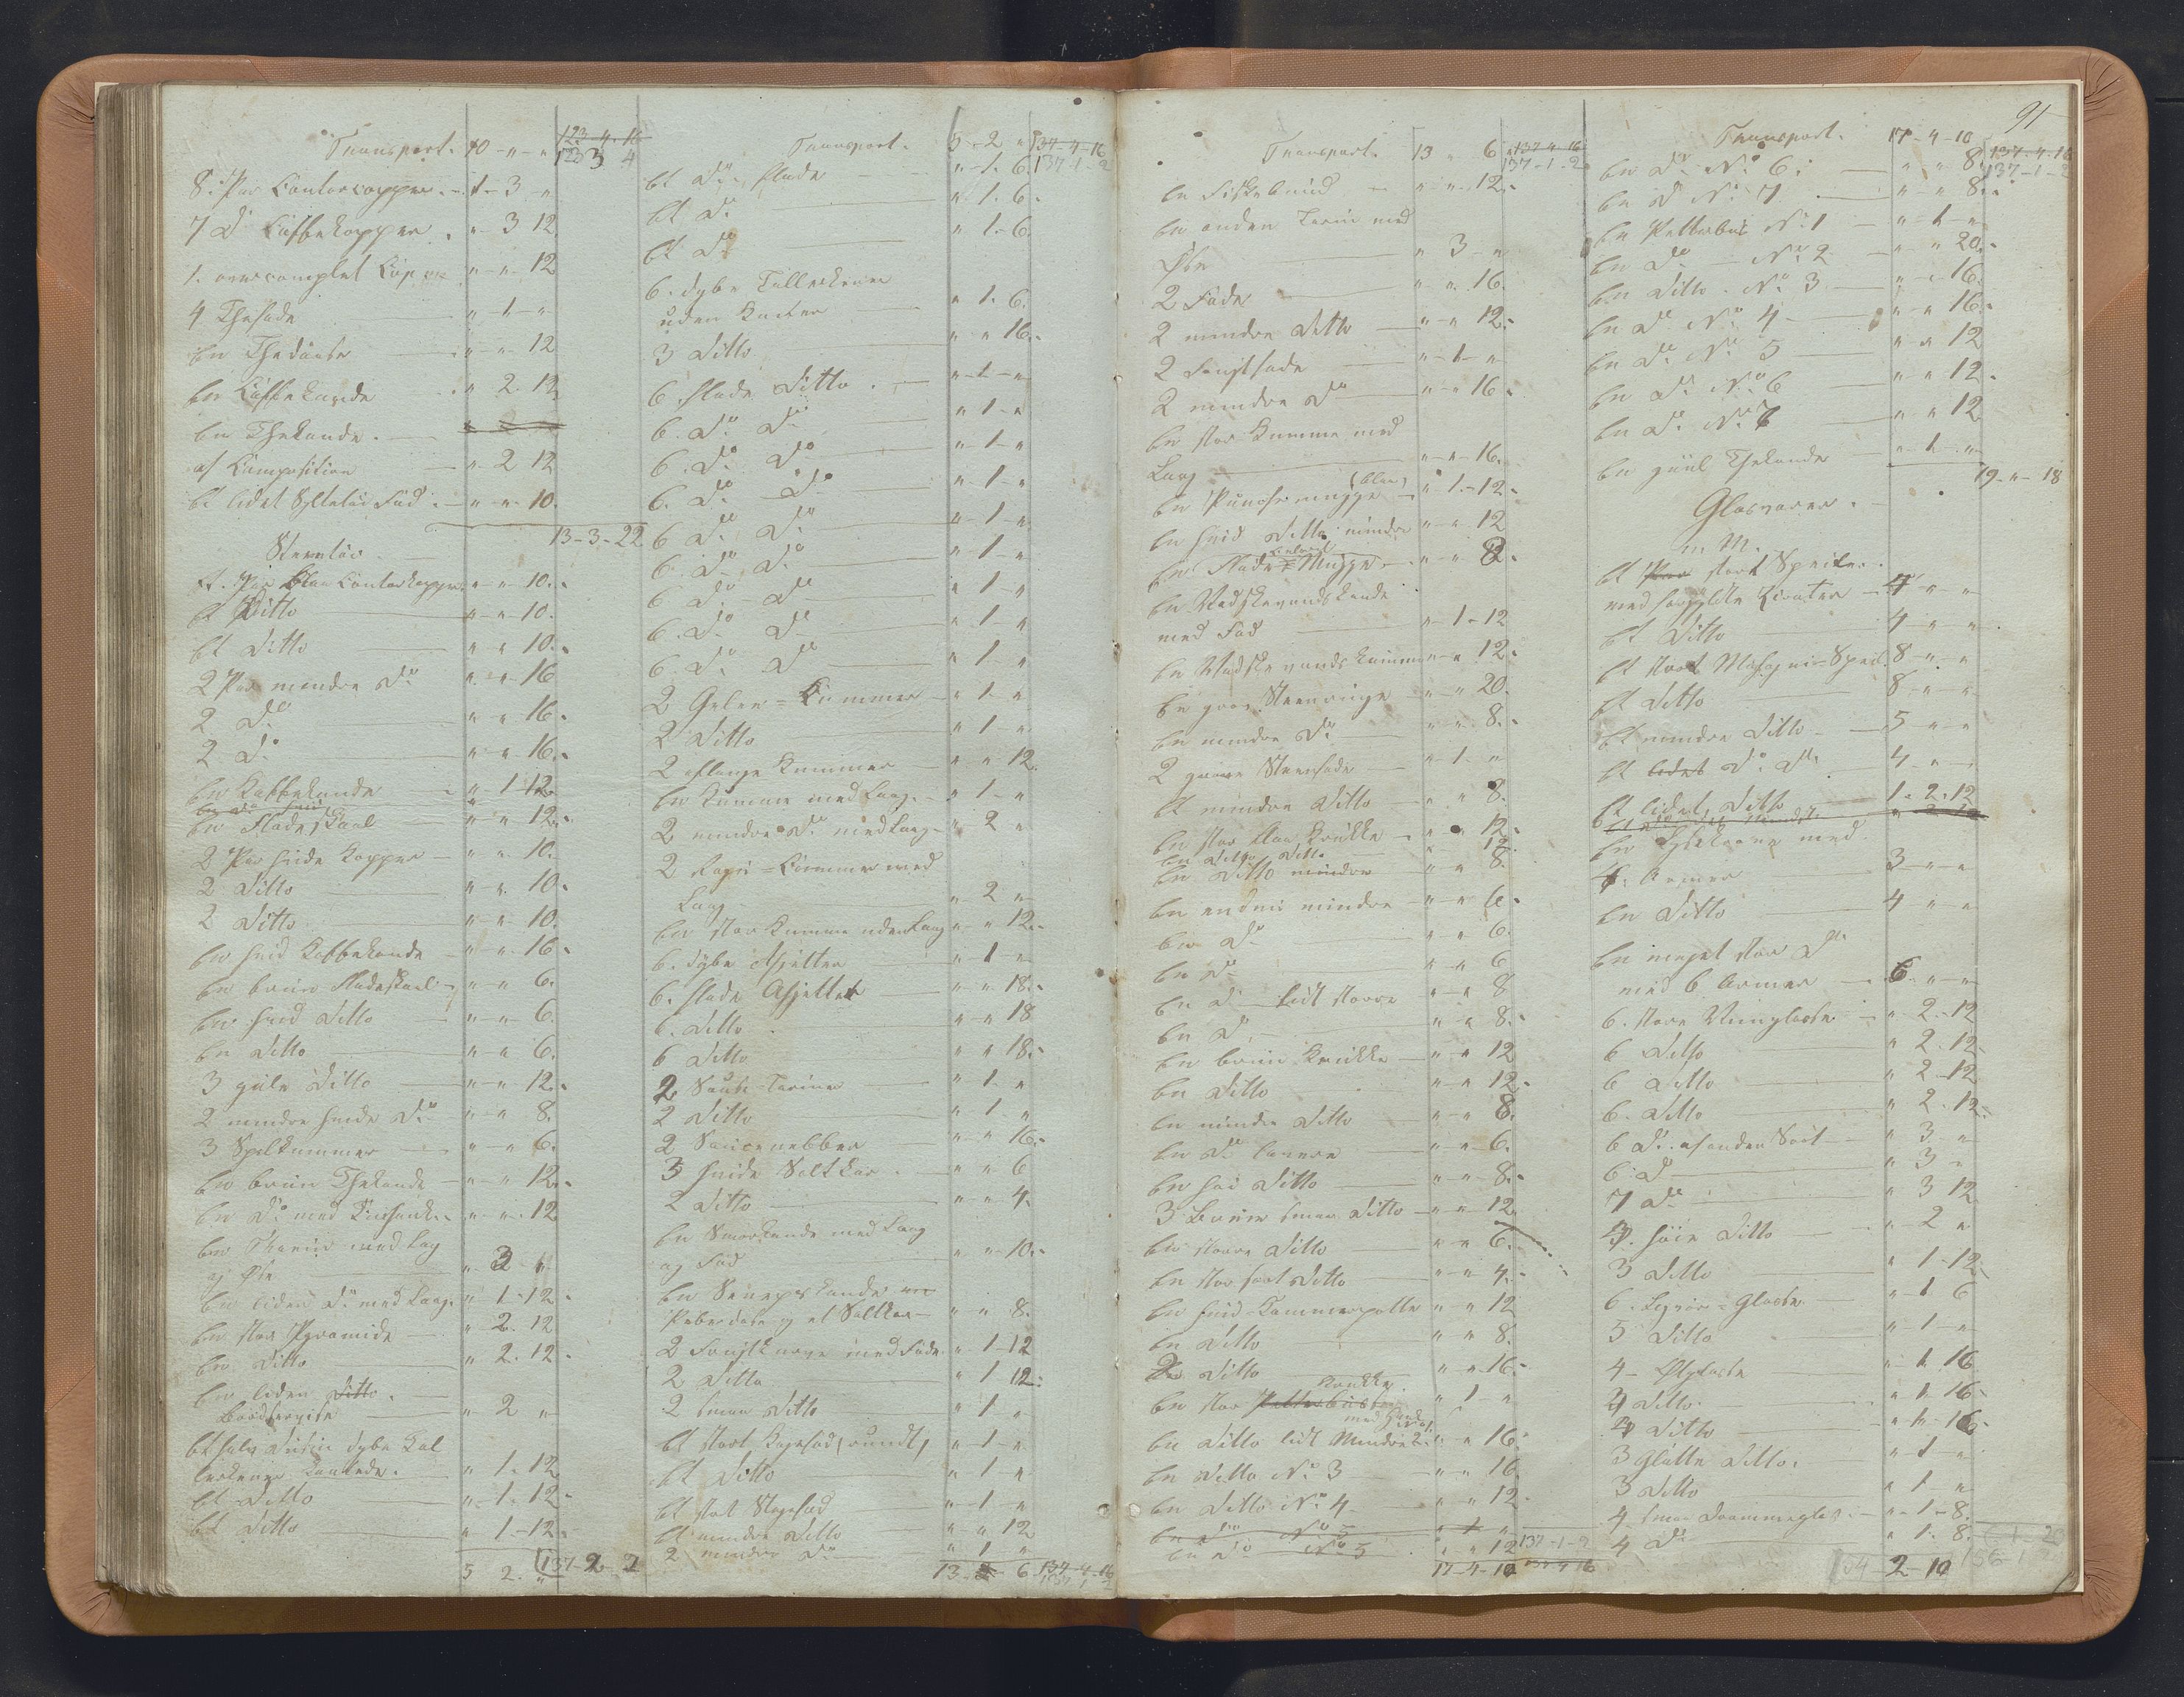 Transport. 10 " " 123 4 16
123 3 4
8 Par Contorcopper 1 3 "
7 do Caffekopper " 3 12
1. overcomplet Kop " " 12
4 Thefade " 1 "
En Thedaase " " 12
En Caffekande " 2. 12
En Thekande.
af Composition " 2 12
Et lidet Syltetøi Fad " " 10.
13-3-22
Steentøi
2. Par blaa Contorkopper " " 10.
2 Ditto " " 10.
Et Ditto " " 10.
2 Par mindre Do " " 16
2 Do " " 16.
2 Do " " 16.
En Kaffekande " 1 12
En Flødeskaal " " 12.
2 Par hvide Kopper " " 10.
2 Ditto " " 10.
2 Ditto " " 10.
En hvid Kaffekande " " 16
En bruun Flødeskaal " " 6.
En hvid Ditto " " 6.
En Ditto " " 6.
3 gule Ditto " " 12.
2 mindre hvide Do " " 8.
3 Spilkummer " " 6.
En bruun Thekande " " 12.
En Do med " " 12
En Therin med Lag
og Øse " 3 "
En liden Do med Laag " 1-12
En stor Pyramide " 2. 12
En Ditto " 2. 12
En liden Ditto.
Bordservise " 2 "
Et halv Dusin dybe Tal
lerkener kantede. " 1. 12
Et Ditto " 1. 12
Et Ditto " 1. 12
5 2. " 137-2-2
Transport. 5 2 " 137-4-16
137-1-2
Et Do flade " 1. 6.
Et Do " 1. 6.
Et Do " 1. 6.
6. dybe Tallerkener
uden Kanter " 1. 6.
3 Ditto " " 16.
6 flade Ditto " 1 "
6. Do Do " 1 "
6. Do Do " 1 "
6. Do Do " 1 "
6 Do Do " 1 "
6. Do Do " 1 "
6 Do Do " 1 "
6. Do Do " 1 "
6. Do Do " 1 "
2 Gelee-Kummer " 1 "
2 Ditto " 1 "
2 aflange Kummer " " 12.
En Kumme med Laag " 1 "
2 mindre Do med Laag " 2 "
2 Ragu-Kummer med
Laag " 2 "
En stor Kumme uden Laag " " 12.
6. dybe Asjetter " 1 "
6. flade Asjetter " " 18.
6. Ditto " " 18
6 Ditto " " 18.
2 Saus-Teriner " 1 "
2 Ditto " 1 "
2 Saucenebber " " 16.
3 hvide Saltkar " " 6
2 Ditto " " 4.
En Smørkande med Laag
og Fad " " 10.
En Senepskande en
Peberdaase og et Saltkar " " 8.
2 Frugtkurve med Fade " 1-12
2 Ditto " 1 12.
2 smaa Ditto " 1 "
Et stort Kagefad, rundt, " 1 "
Et Ditto " 1 "
Et stort Stegefad " 1 "
Et mindre Ditto " " 12
2 mindre Do " 1 "
13 " 6 137-4-16
Transport. 13 " 6 137 4 16
137-1-2
En Fiskebund " " 12.
En anden Terin med
Øse " 3 "
2 Fade " " 16.
2 mindre Ditto " " 12.
2 Frugtfade " 1 "
2 mindre Do " " 16.
En stor Kumme med
Laag " " 16.
En Punschemugge (blaa) " 1. 12.
En hvid Ditto mindre " " 12
En Fløde-Mugge " " 8.
En Vadskevandskande
med Fad " 1-12
En Vadskevandskumme " " 12.
En graa Steenringe " " 20.
En mindre Do " " 8.
2 graae Steenfade " 1 "
Et mindre Ditto " " 8.
En stor blaa Krukke " " 12.
En Ditto Ditto " " 12.
En Ditto mindre " " 8.
En endnu mindre " " 6.
En Do " " 6.
En Do " " 6
En Do lidt større " " 8
En Do " " 8.
En bruun Krukke " " 12
En Ditto " " 12.
En mindre Ditto " " 8.
En Do lavere " " 6.
En høi Ditto " " 8.
3 Brune smaa Ditto " " 12
En større Ditto " " 6.
En stor sort Ditto " " 4.
En hvid Kammerpotte " " 12
En Ditto " " 8.
2 Ditto " " 16.
En stor Krukke " 1 "
En Ditto lidt Mindre 2 " " 16.
En Ditto No 3 " " 16.
En Ditto No 4 " " 12.
En Do No 5 " " 12 137-1-2
17-4-10 137 4 16
91
Transport. 17-4-10 137-4-16
137-1-2
En Do No 6. " " 8
En Do No 7 " " 8.
En Potteb No 1 " 1 "
En Do No 2 " " 20.
En Ditto No 3 " " 16.
En Do No 4 " " 16.
En Do No 5 " " 12
En Do No 6 " " 12.
En Do No 7 " " 12
En guul Thekande " 1 "
19 " 18
Glasvarer.
m. M.
Et stort Speil
med forgyldte Lister 4 " "
Et Ditto 4 " "
Et stort Mahogni-Speil 8 " "
Et Ditto 8 " "
Et mindre Ditto 5 " "
Et Do Do 4 " "
Et lidet Ditto 1. 2. 12
En Lysekrone med
4. Armer 3 " "
En Ditto 4 " "
En meget stor Do
med 6 Armer 6 " "
6. store Viinglasse " 2. 12
6 Ditto " 2. 12
6 Ditto " 2-12
6. Ditto " 2. 12.
6 Do af anden Sort " 3 "
6 Do " 3 "
7 Do " 3 12
4. høie Ditto " 2 "
3 Ditto " 1-12
6. Liqvør-Glasse " 1 6
5 Ditto " 1 "
4 Ølglasse " 1. 16
4 Ditto " 1 16
4 Ditto " 1 16
3 Glatte Ditto. " 1 "
3 Ditto " 1 "
4 smaa Drammeglas " 1-8.
4 Do " 1. 8.
2-10